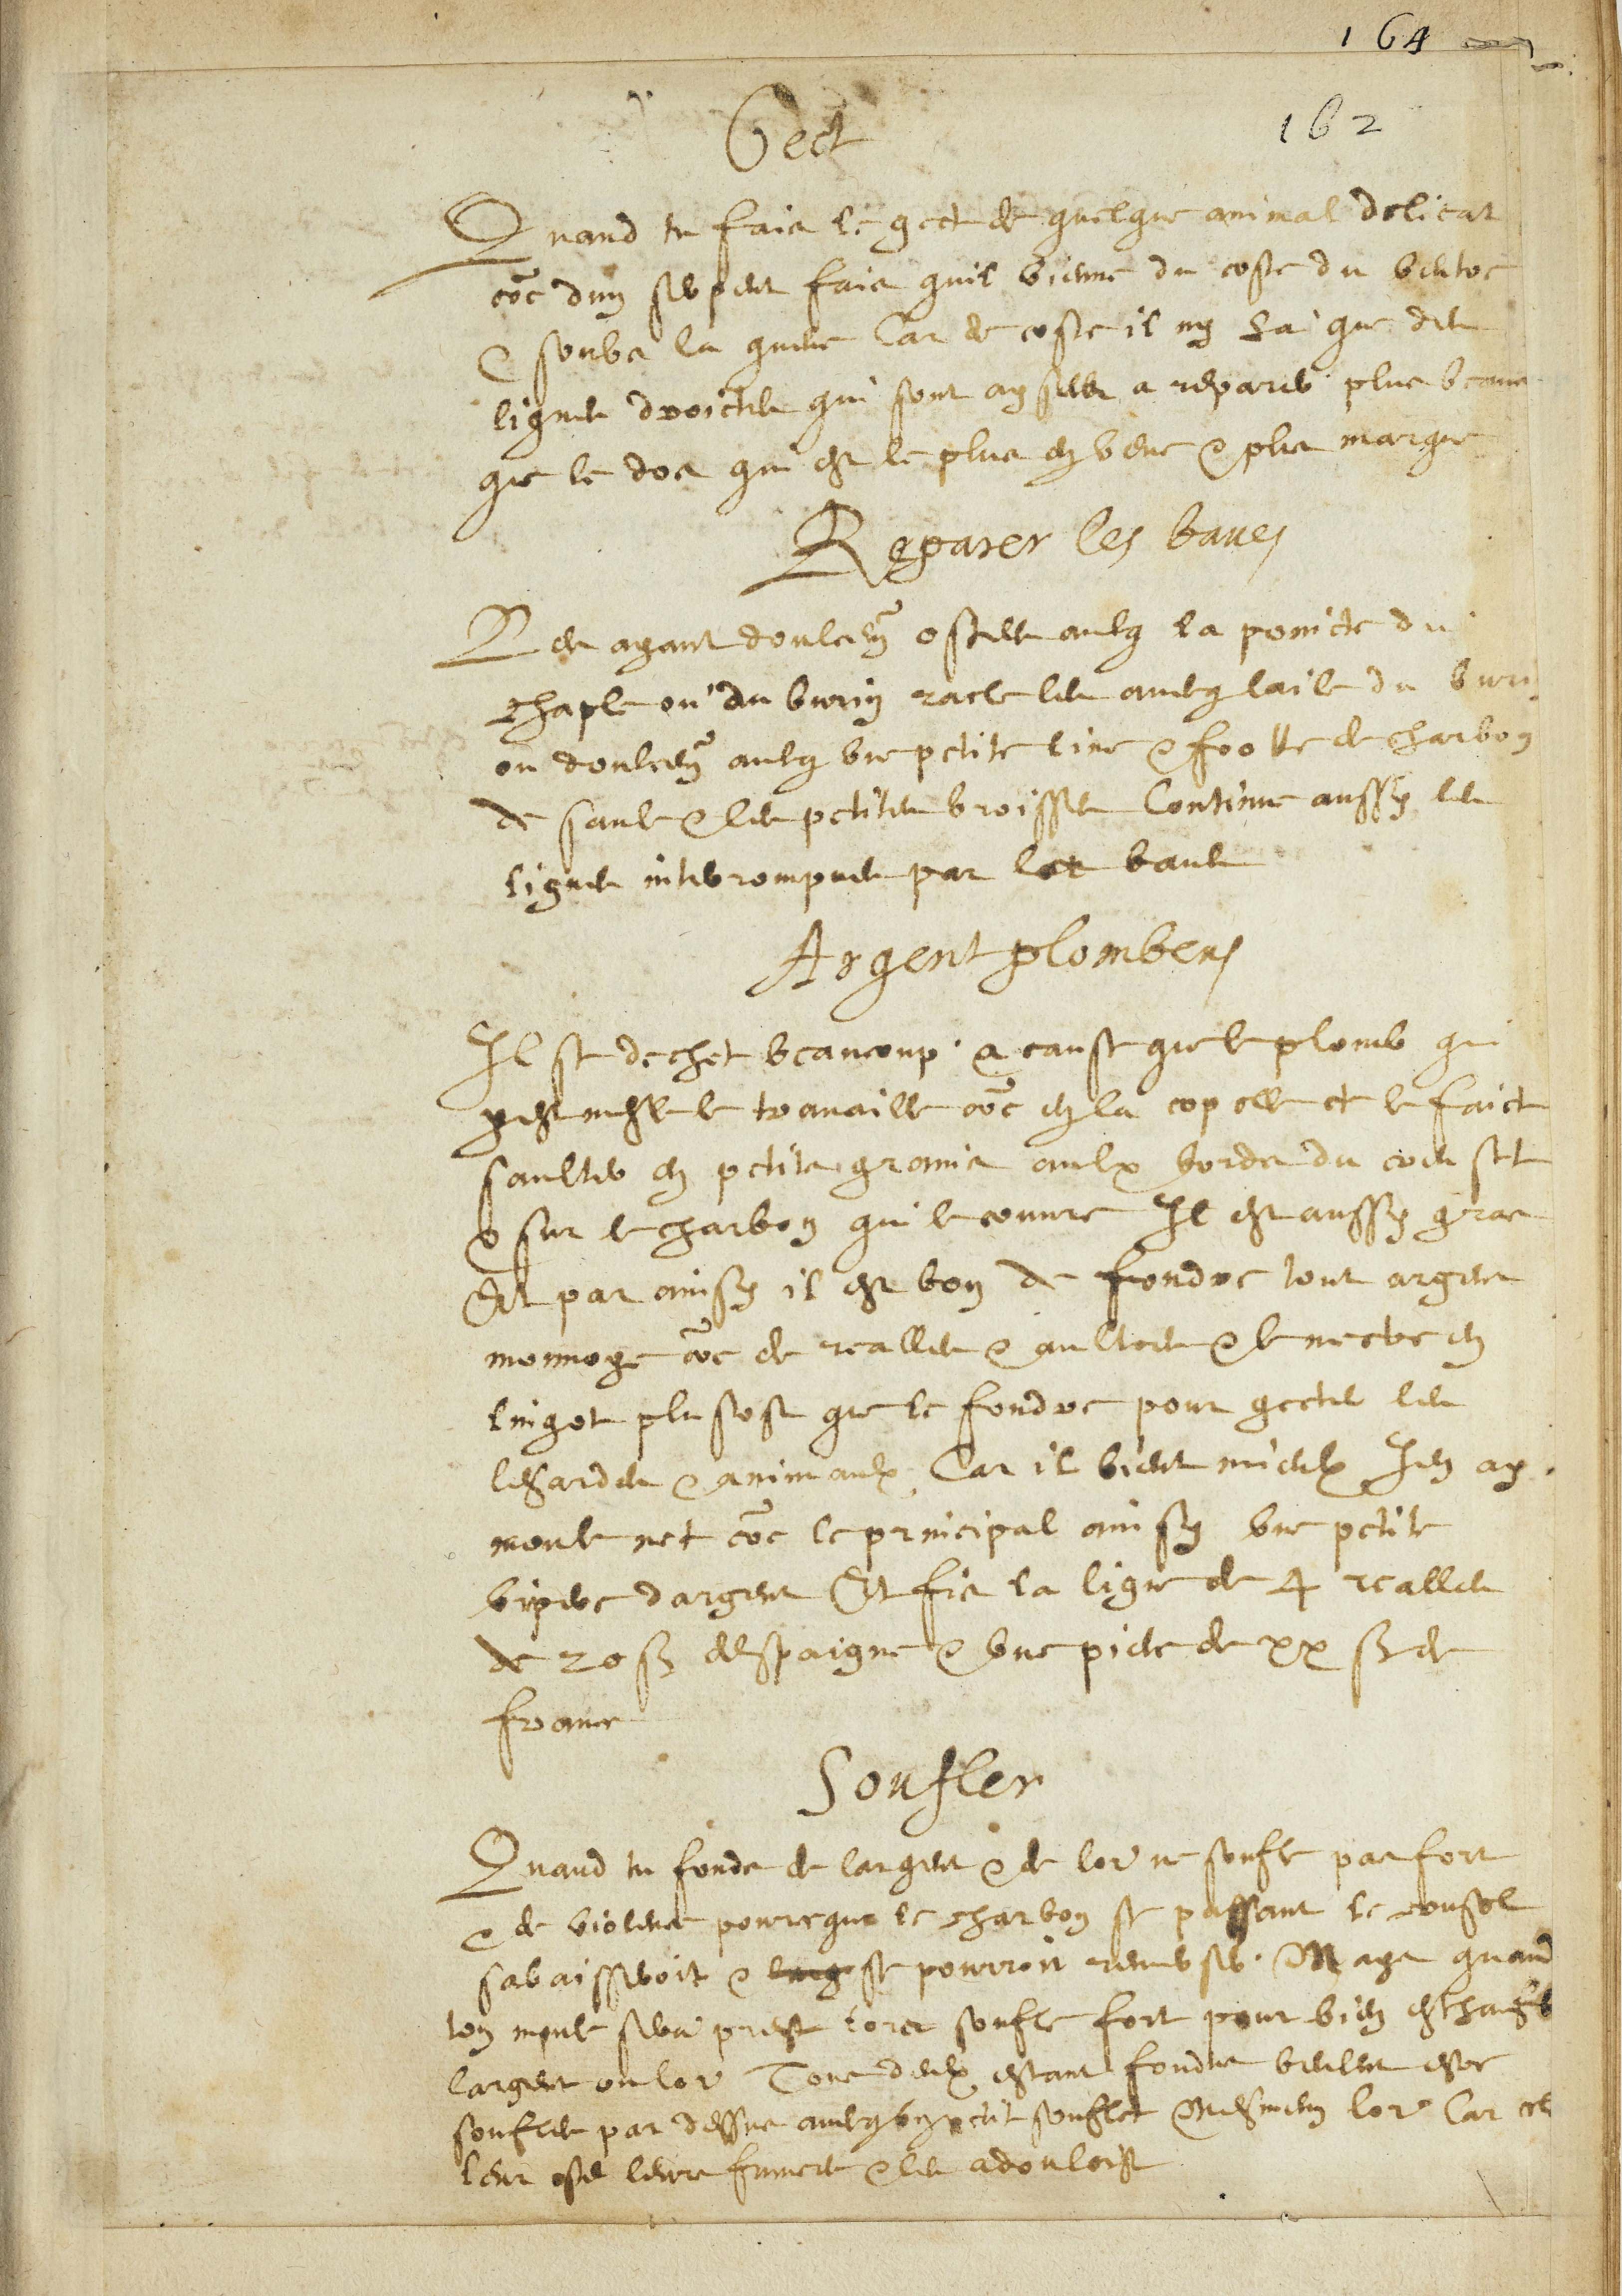 164
162
Gect
Quand tu fais le gect de quelque animal delicat
co͞e dun serpent fais quil vienne du coste du ventre
& soubs la gueule Car de coste il ny ha que des
lignes droictes qui sont aysees a reparer plus beaucoup
que le dos qui est le plus en veue & plus marque
Reparer les baves
Les ayant doulcem͞t ostees aulq la poincte du
chaple ou du burin racle les avecq laile du buri
ou doulcem͞t avecq une petite lime & frotte de charbon
de saule & les petites broisses Continue aussy les
lignes interrompues par les baves
Argent plombeus
Il se dechet beaucoup a cause que le plomb qui
y est mesle le travaille co͞e en la copelle et le faict
saulter en petits grains aulx bords du creuset
& sur le charbon qui le couvre Il est aussy gras
Et par ainsy il est bon de fondre tout argent
monnoye co͞e de realles & aultres & le mectre en
lingot plustost que le fondre pour gecter les
lesardes & animaulx Car il vient mieulx Jen ay
moule net co͞e le principal ainsy une petite
vipere dargent Et fis la ligue de 4 realles
de 20 ß despaigne & une piece de xx ß de
france
Soufler
Quand tu fonds de largent & de lor ne soufle pas fort
& de violence pourceque le charbon se passant le creuset
sabaisseroit & se pourroit renverser Mays quand
ton moule sera prest lors soufle fort pour bien eschaufer
largent ou lor Tous deulx estant fondus veulent estre
souflés par dessus avecq un petit souflet Mesmem͞t lor Car cela
leur oste leurs fumees & les adoulcist